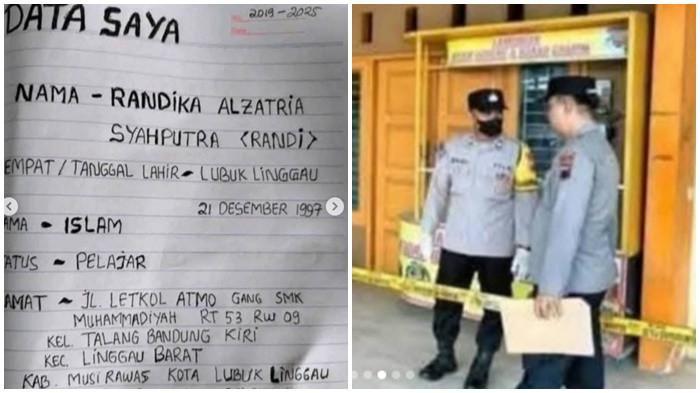 DATA SAYA
No. 2019 - 2025
NAMA - RANDIKA ALZATRIA
SYAHPUTRA <RANDI>
EMPAT / TANGGAL LAHIR - LUBUK LINGGAU
21 DESEMBER 1997
AMA - ISLAM
ATUS - PELAJAR
AMAT - JL. LETKOL ATMO GANG SMK
MUHAMMADIYAH RT 53 RW 09
KEL. TALANG BANDUNG KIRI
KEC. LINGGAU BARAT
KAB. MUSI RAWAS KOTA LUBUK LINGGAU
LAMONGAN